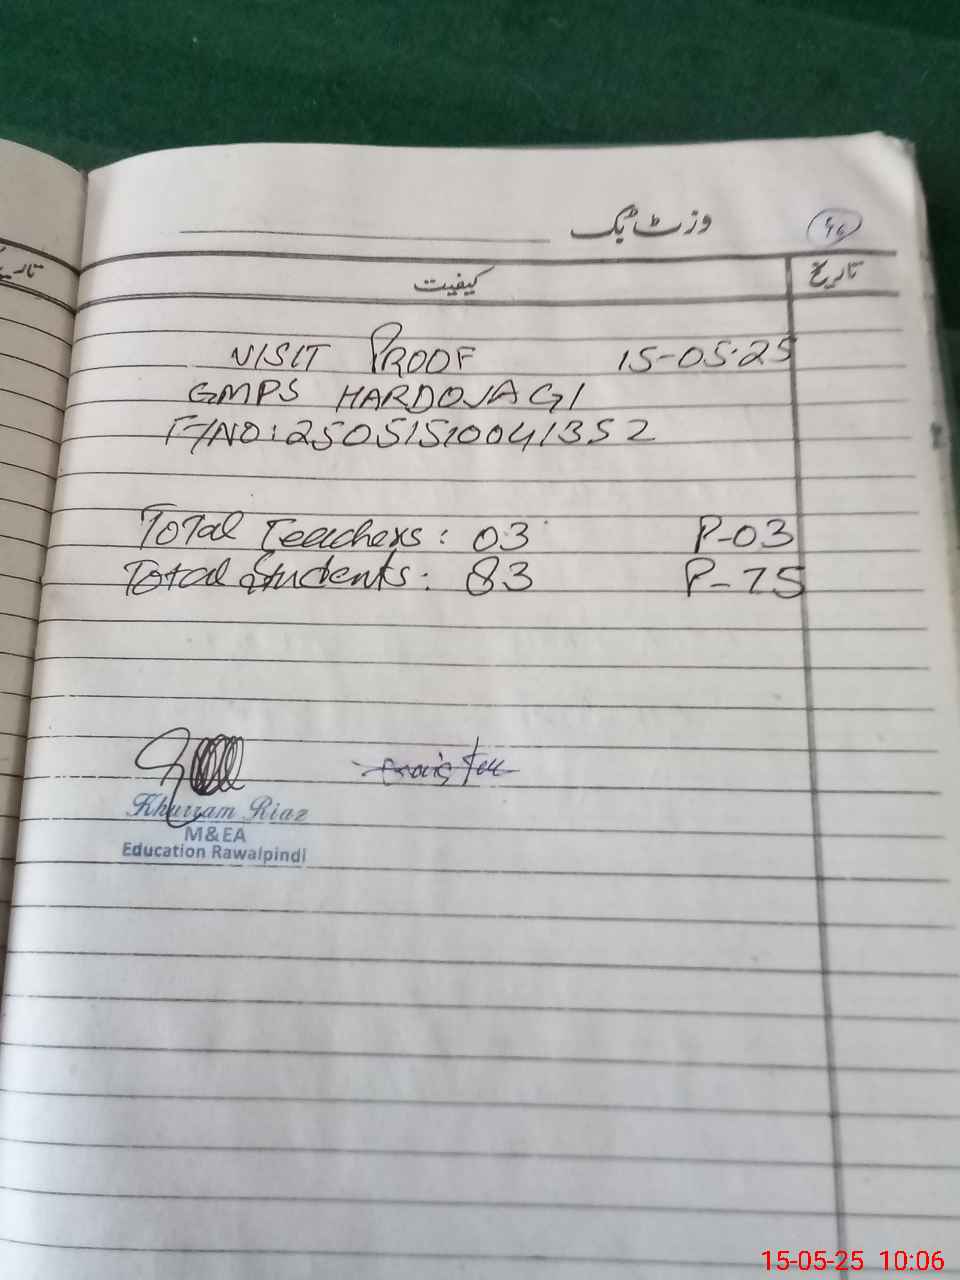 وزٹ بک
تاریخ
کیفیت
تاریخ
VISIT PROOF 15-05-25
GMPS HARDOJAGI
F/NO: 25051510041352
Total Teachers: 03 P-03
Total Students: 83 P-75
Khurram Riaz
M&EA
Education Rawalpindi
15-05-25 10:06